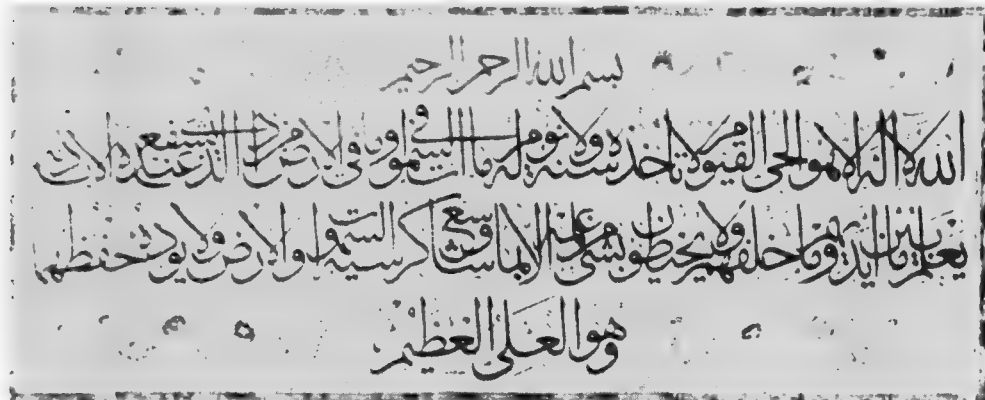 بسم الله الرحمن الرحيم
الله لا اله الا هو الحي القيوم لا تاخذه سنة ولا نوم له ما في السموات وما في الارض من ذا الذي يشفع عنده الا باذنه
يعلم ما بين ايديهم وما خلفهم ولا يحيطون بشئ من علمه الا بما شاء وسع كرسيه السموات والارض ولا يوده حفظهما
وهو العلي العظيم